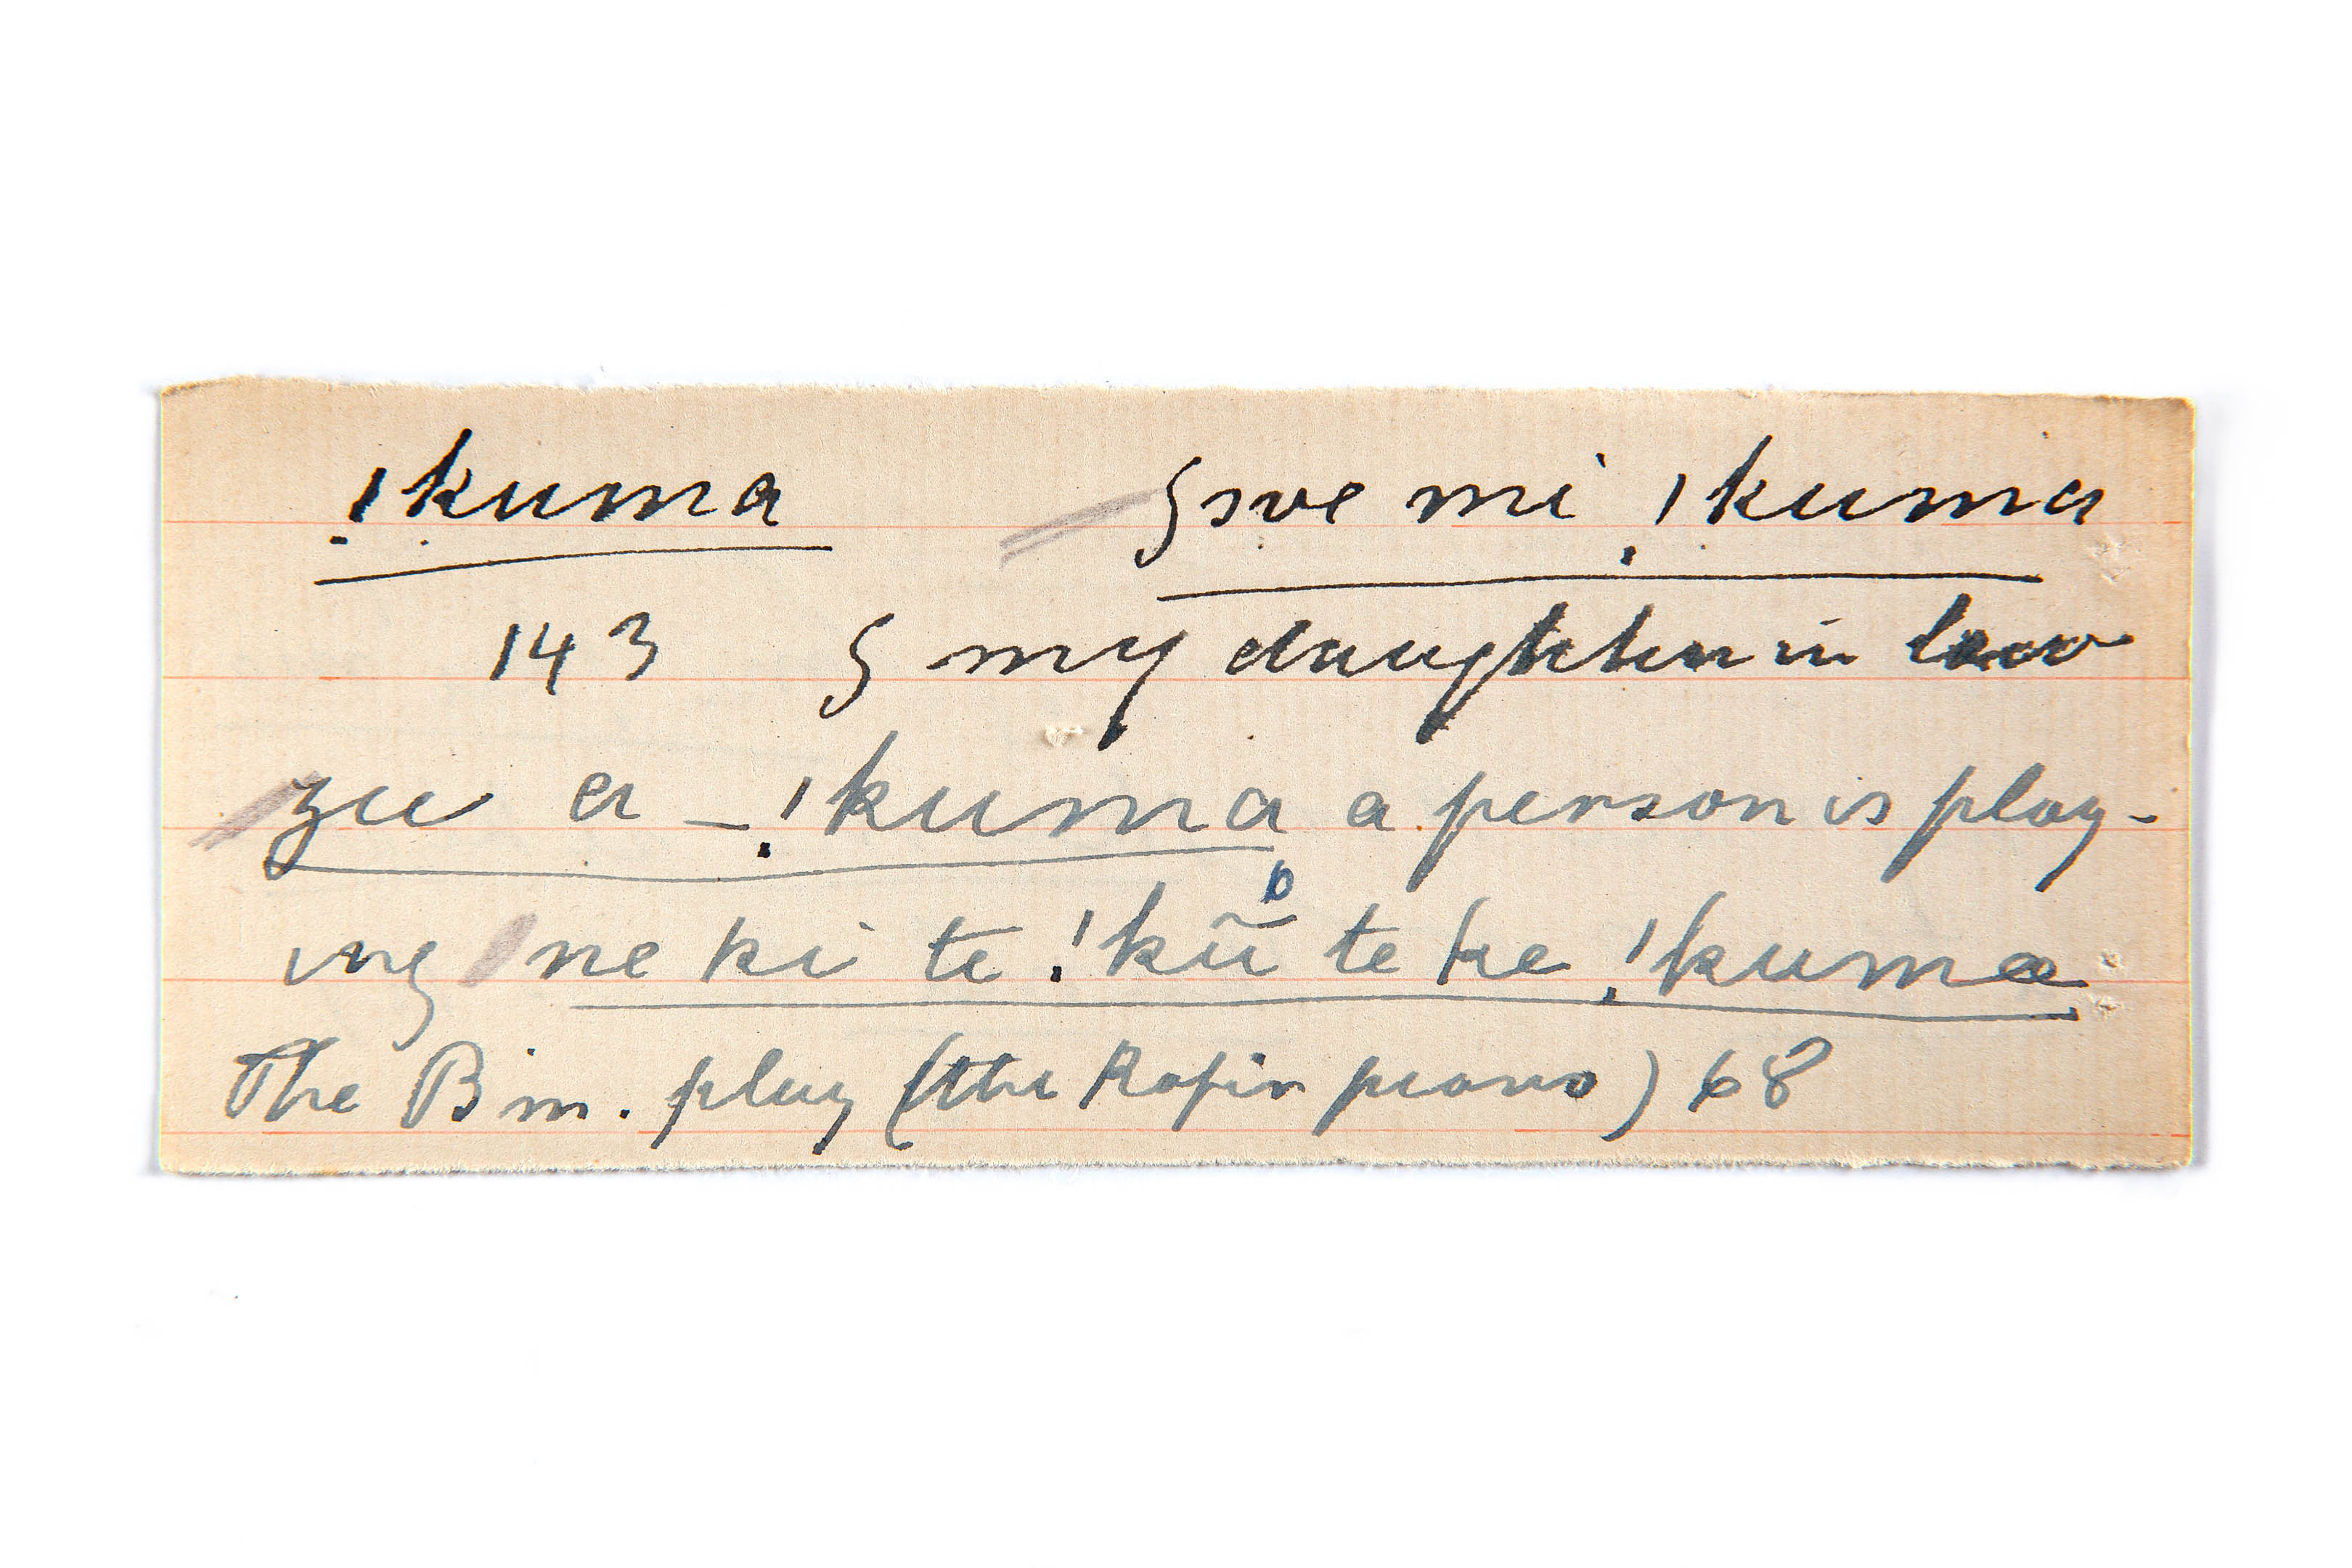 !kuma ʃove mi !kuma
143 ʃ my daughter in law
zu a – !kuma a person is play-
ing ne ki te !kũ te ke !kuma
The Bim. play (the Kafir piano) 68